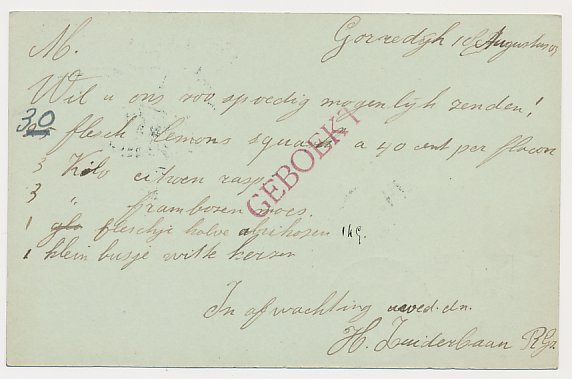 Gorredijk 10 Augustus 01
M.
Wil u ons zoo spoedig mogenlijk zenden!
30 flesch lemons squash a 40 cent per flacon
3 Kilo citroen rasp
3 " frambozen moes.
1 glo fleschje halve abrikosen 1 kg.
1 klein busje witte kersen
In afwachting uwed. dn.
H. Zuiderbaan
GEBOEKT